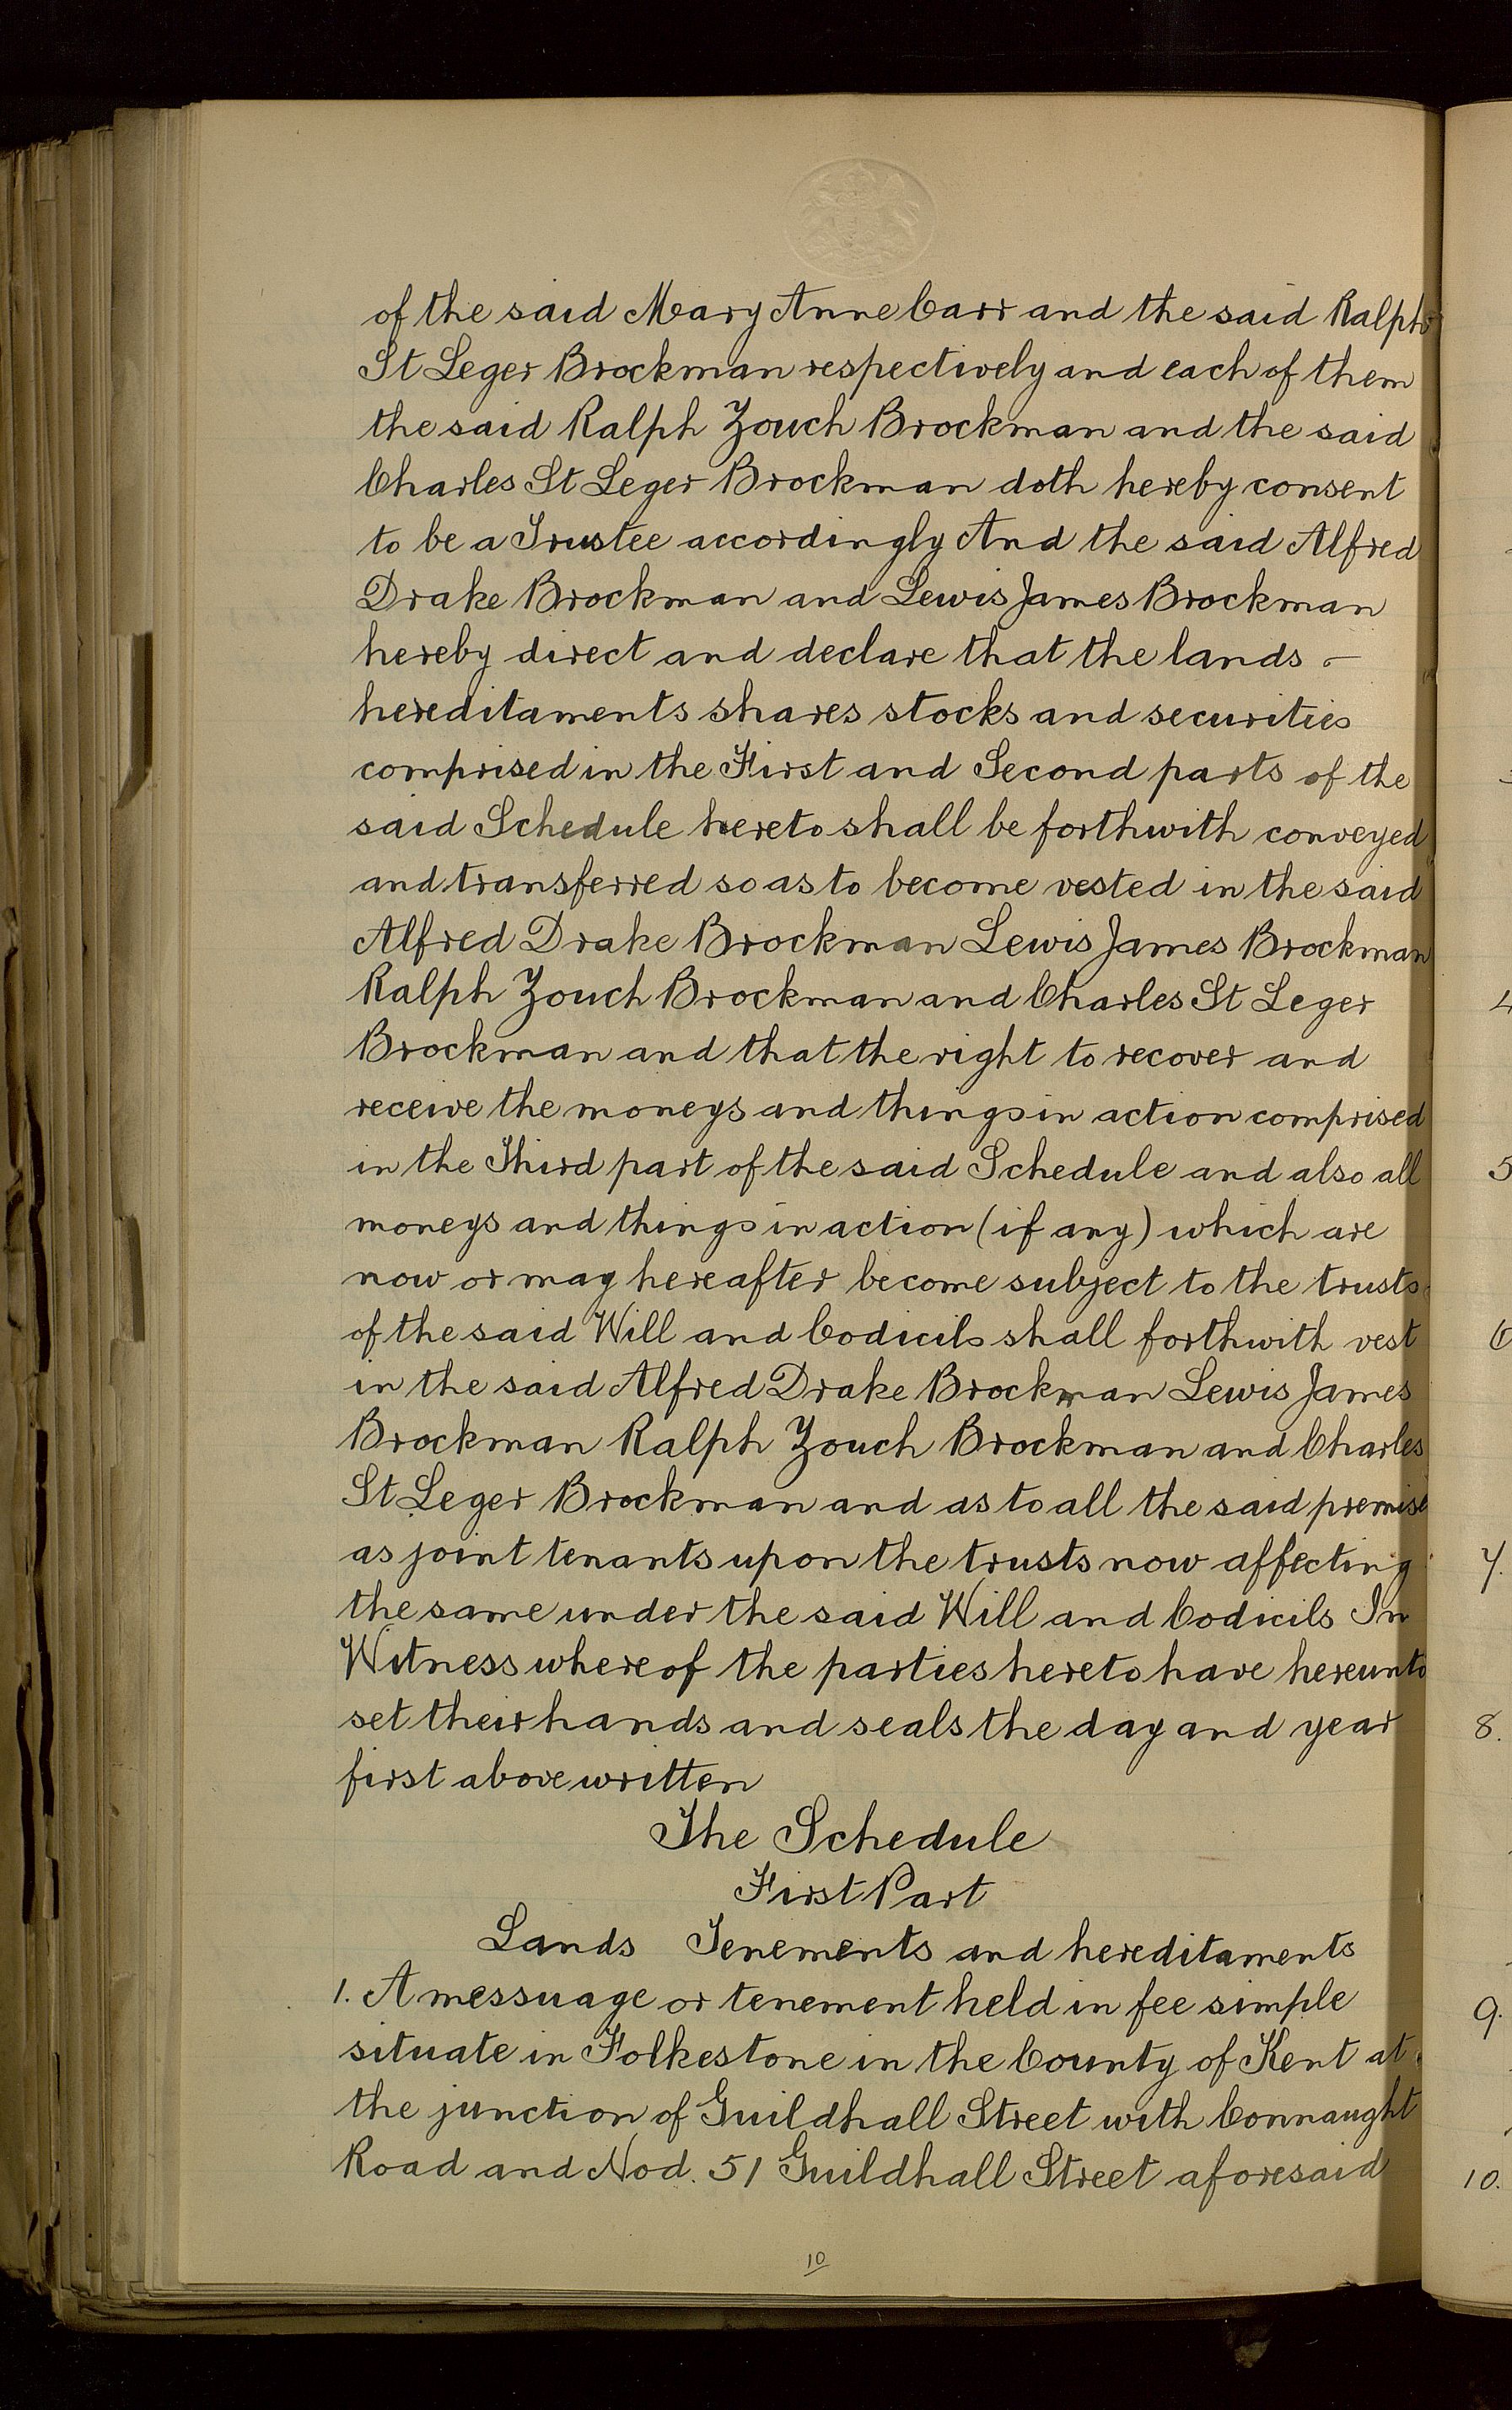 of the said Mary Anne Carr and the said Ralph
St Leger Brockman respectively and each of them
the said Ralph Zouch Brockman and the said
Charles St Leger Brockman doth hereby consent
to be a Trustee accordingly And the said Alfred
Drake Brockman and Lewis James Brockman
hereby direct and declare that the lands -
hereditaments shares stocks and securities
comprised in the First and Second parts of the
said Schedule hereto shall be forthwith conveyed
and transferred so as to become vested in the said
Alfred Drake Brockman Lewis James Brockman
Ralph Zouch Brockman and Charles St Leger
Brockman and that the right to recover and
receive the moneys and things in action comprised
in the Third part of the said Schedule and also all
moneys and things in action (if any) which are
now or may hereafter become subject to the trusts
of the said Will and Codicils shall forthwith vest
in the said Alfred Drake Brockman Lewis James
Brockman Ralph Zouch Brockman and Charles
St Leger Brockman and as to all the said premise
as joint tenants upon the trusts now affecting
the same under the said Will and Codicils In
Witness whereof the parties hereto have hereunto
set their hands and seals the day and year
first above written
The Schedule
First Part
Lands Tenements and hereditaments
1. A messuage or tenement held in fee simple
situate in Folkestone in the County of Kent at
the junction of Guildhall Street with Connaught
Road and Nod. 51 Guildhall Street aforesaid
10
4
5
6
7.
8.
9.
10.